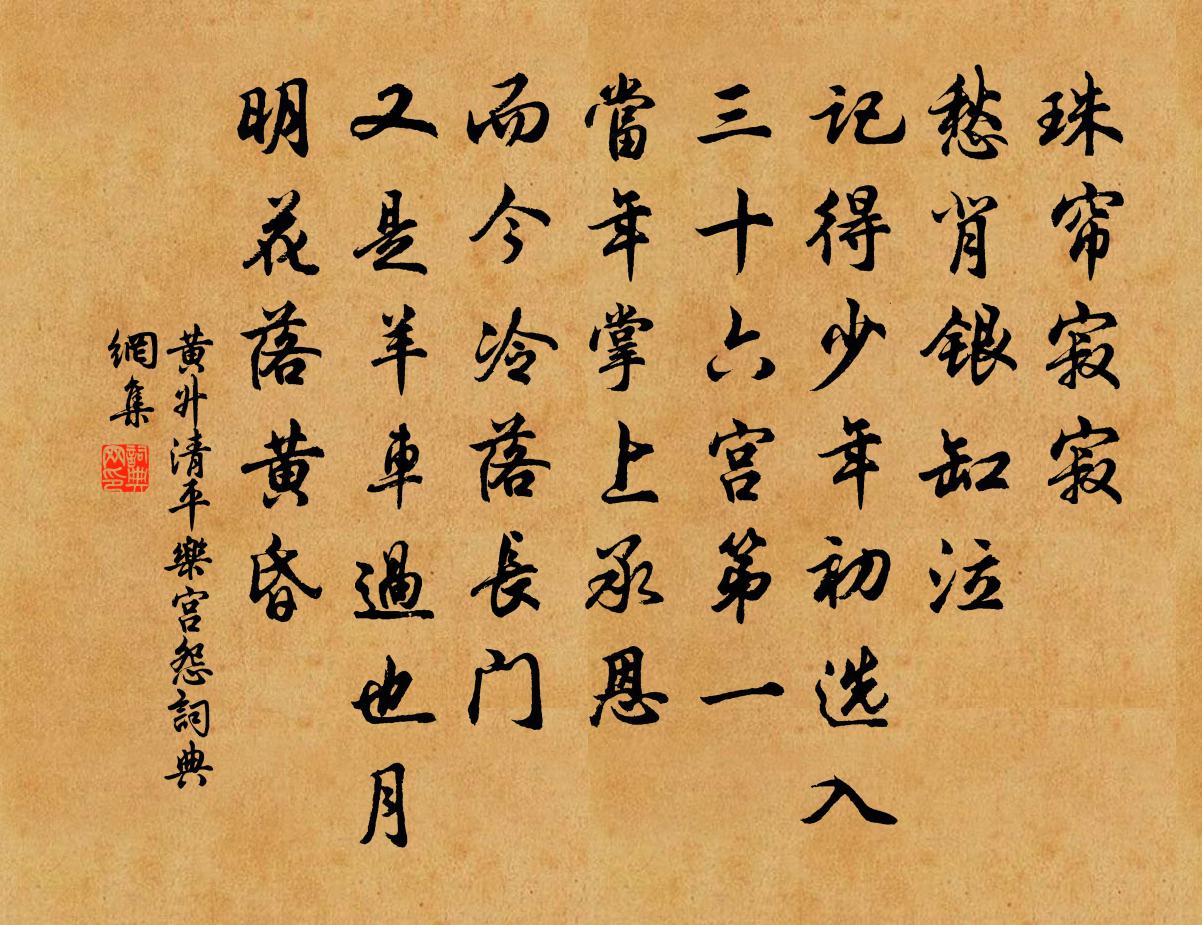 珠帘寂寂
愁背银缸泣
记得少年初选入
三十六宫第一
當年掌上承恩
而今冷落長门
又是羊車過也月
明花落黄昏
黄升清平樂宫怨詞典
網集
詞典網印